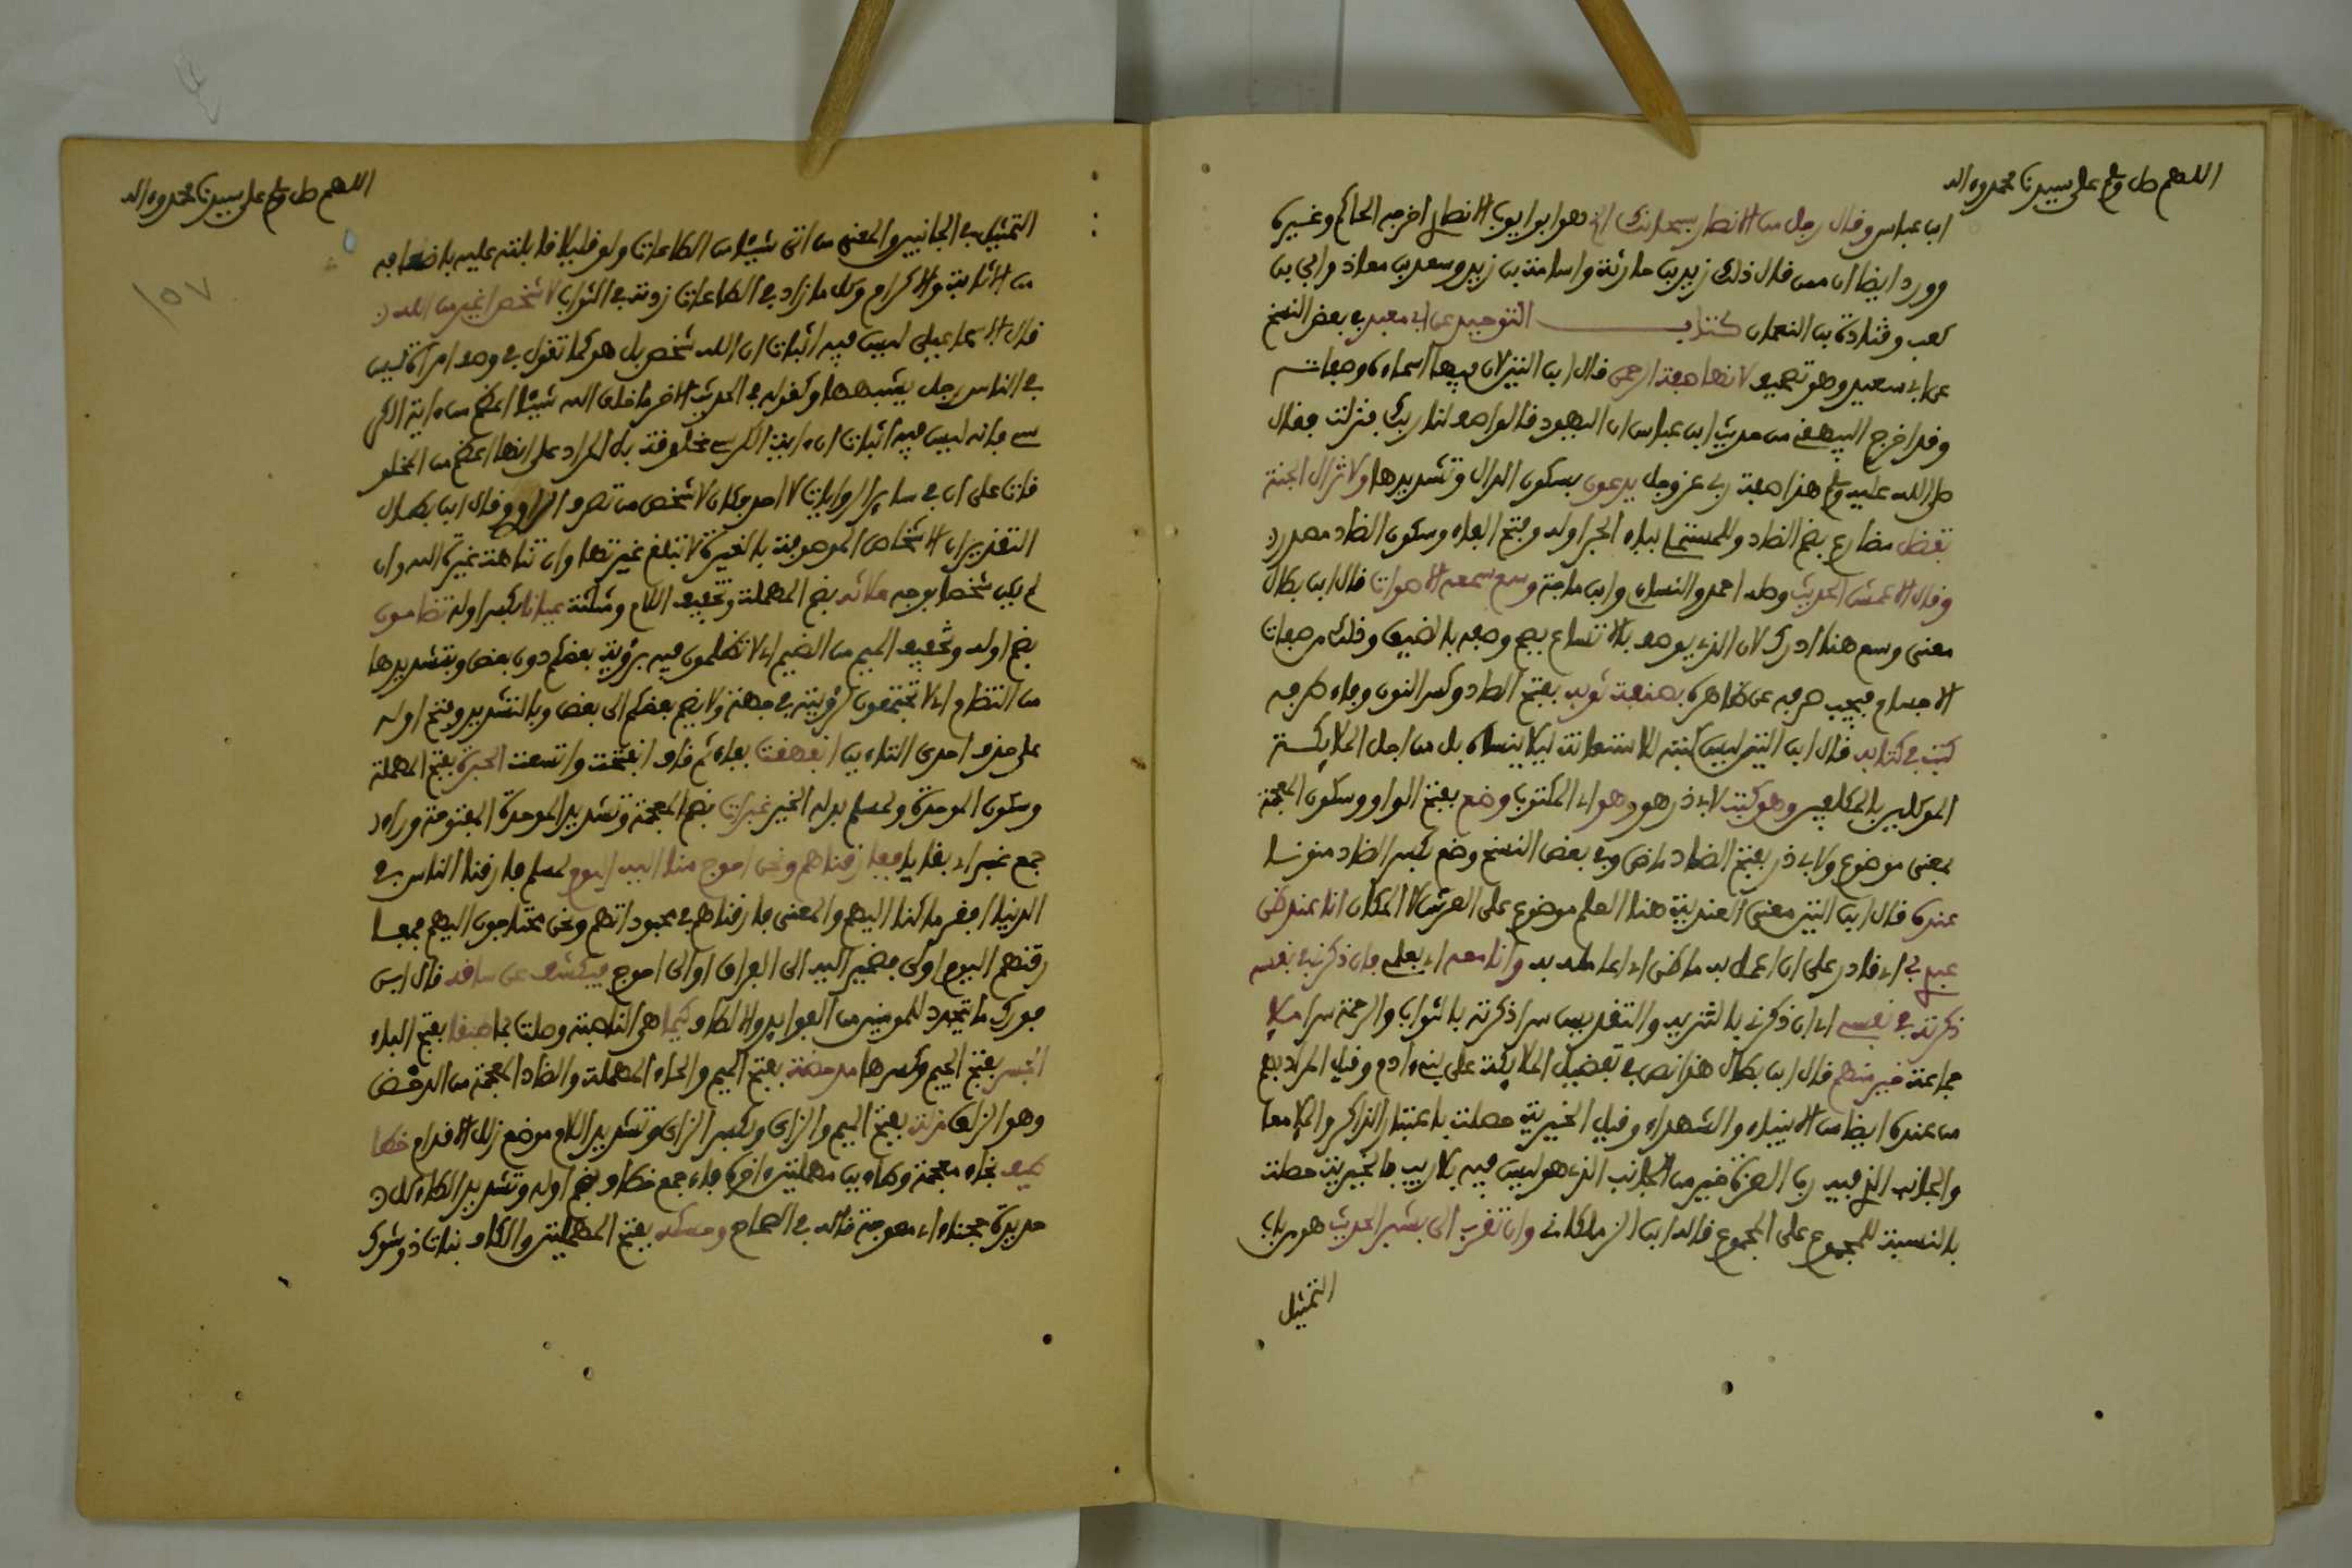 اللهم صل وسلم على سيدنا محمد وءاله
ابن عباس وقال رجل من الانصار سبحانك الخ هو ابو ايوب الانصاري اخرجه الحاكم وغيره
وورد ايضا ان ممن قال ذلك زيد بن حارثة واسامة بن زيد وسعد بن معاذ وابي بن
كعب وقتادة بن النعمان كتاب التوحيد عن ابي معبد في بعض النسخ
عن ابي سعيد وهو تصحيف لانها صفة الرحمن قال ابن التين لان فيها اسماءه وصفاته
وقد اخرج البيهقي من حديث ابن عباس ان اليهود قالوا صف لنا ربك فنزلت فقال
صلى الله عليه وسلم هذا صفة ربي عز وجل يدعون بسكون الدال وتشديدها ولا تزال الجنة
تفضل مضارع بضم الضاد وللمستملي بباء الجر اوله وفتح الفاء وسكون الضاد مصدر
وقال الاعمش الحديث وصله احمد والنسائي وابن ماجة وسع سمعه الاصوات قال ابن بطال
معنى وسع هنا ادرك لان الذي يوصف بالاتساع يصح وصفه بالضيق وذلك من صفات
الاجسام فيجب صرفه عن ظاهره بصنفة ثوبه بفتح الصاد وكسر النون وفاء طرفه
كتب في كتابه قال ابن التين ليس كتبه للاستعانة ليلا ينساه بل من اجل الملايكة
الموكلين بالمكلفين وهو كتب لابي ذر هو وهو اي المكتوب وضع بفتح الواو وسكون المعجمة
بمعنى موضوع ولابي ذر بفتح الضاد ماض وفي بعض النسخ وضع بكسر الضاد منونا
عنده قال ابن التين معنى العندية هنا العلم موضوع على العرش لا المكان انا عند ظن
عبدي بي اي قادر على ان اعمل به ما ظن اي عامله به وانا معه اي بعلمي فان ذكرني في نفسه
ذكرته في نفسي اي ان ذكرني بالتنزيه والتقديس سرا ذكرته بالثواب والرحمة سرا ملإ
جماعة خير منهم قال ابن بطال هذا نص في تفضيل الملايكة على بني ءادم وقيل المراد بهم
من عنده ايضا من الانبياء والشهداء وقيل الخيرية حصلت باعتبار الذاكر والملإ معا
والجانب الذي فيه رب العزة خير من الجانب الذي هو ليس فيه بلا ريب فالخيرية حصلت
بالنسبة للمجموع على المجموع قاله ابن الزملكاني وان تقرب الى بشبر الحديث هو من باب
التمثيل
اللهم صل وسلم على سيدنا محمد وءاله
١٥٧
التمثيل في الجانبين والمعنى من اتى شيئا من الطاعات ولو قليلا قابلته عليه باضعافه
من الاثابة والاكرام وكل ما زاد في الطاعات زدته في الثواب لا شخص اغير من الله
قال الاسماعيلي ليس فيه اثبات ان الله شخص بل هو كما تقول في وصف امراة ليس
في الناس رجل يشبهها وكقوله في الحديث الاخر ما خلق الله شيئا اعظم من ءاية الكر
سي فانه ليس فيه اثبات ان ءاية الكرسي مخلوقة بل المراد على انها اعظم من المخلو
قات على ان في ساير الروايات لا احد فكان لا شخص من تصرف الراوي وقال ابن بطال
التقدير ان الاشخاص الموصوفة بالغيرة لا تبلغ غيرتها وان تناهت غيرة الله وان
لم يكن شخصا بوجه ملاثه بضم المهملة وتخفيف اللام ومثلثة عيانا بكسر اوله تضامون
بضم اوله وتخفيف الميم من الضيم اي لا تظلمون فيه برؤية بعضكم دون بعض وبتشديدها
من التضام اي لا تجتمعون لرؤيته في جهة ولا يضم بعضكم الى بعض وبالتشديد وفتح اوله
على حذف احدى التاءين انفهقت بفاء ثم قاف انفتحت واتسعت الحبرة بفتح المهملة
وسكون الموحدة ولمسلم بدله الخير غبرات بضم المعجمة وتشديد الموحدة المفتوحة وراء
جمع غبر اي بقايا فيها فارقناهم ونحن احوج منا اليه اليوم لمسلم فارقنا الناس في
الدنيا افقر ما كنا اليهم والمعنى فارقناهم في معبوداتهم ونحن محتاجون اليهم ففا
رقنهم اليوم اولى فضمير اليه الى الفراق او الى احوج فيكشف عن ساقه قال ابن
فورك ما يتجدد للمومنين من الفوايد والالطاف كيما هي الناصبة وصلت بما طبقا بفتح الباء
الجسر بفتح الجيم وكسرها مدحضة بفتح الميم والحاء المهملة والضاد المعجمة من الدحض
وهو الزلق مزلة بفتح الميم والزاي وبكسر الزاي وتشديد اللام موضع زلل الاقدام خطا
طيف بخاء معجمة وطاءين مهملتين ءاخره فاء جمع خطاف بضم اوله وتشديد الطاء كل
حديدة حجناء اي معوجة قاله في الصحاح وحسكه بفتح المهملتين والكاف نبات ذو شوك